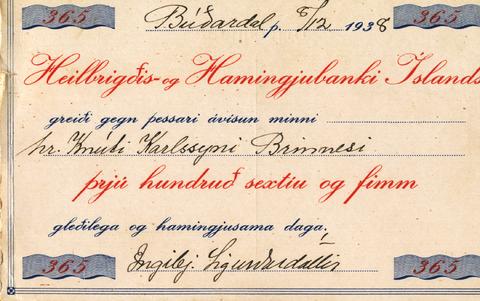 365 365
Búðardal p. 5/12 1938
Heilbrigðis- og Hamingjubanki Íslands
greiði gegn þessari ávísun minni
hr. Knúti Karlssyni Brimnesi
þrjú hundruð sextíu og fimm
gleðilega og hamingjusama daga.
Ingibj. Sigurðardóttir
365 365